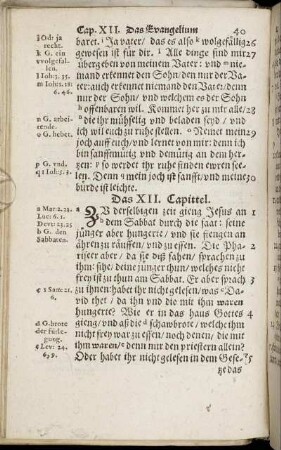 Cap. XII. Das Evangelium 40
baret. Ja vater/ das es also k wolgefällig 26
gewesen ist für dir. l Alle dinge sind mir 27
übergeben von meinem Vater: und niemand
erkennet den Sohn/ denn nur der Vater:
auch erkennet niemand den Vater/ denn
nur der Sohn/ und welchem es der Sohn
offenbaren will. Kommet her zu mir alle/ 28
die ihr mühselig und beladen seyd/ und
ich will euch zu ruhe stellen. Nemet mein 29
joch auff euch/ und lernet von mir: denn ich
bin sanfftmütig und demütig an dem hertzen:
so werdet ihr ruhe finden ewren seelen.
Denn q mein joch ist sanfft/ und meine 30
bürde ist leichte.
Das XII. Capittel.
ZU derselbigen zeit gieng Jesus an 1
dem Sabbat durch die saat: seine
jünger aber hungerte/ und sie fiengen an
ähren zu räuffen/ und zu essen. Die Phariseer 2
aber/ da sie diß sahen/ sprachen zu
ihm: sihe/ deine jünger thun/ welches nicht
frey ist zu thun am Sabbat. Er aber sprach 3
zu ihnen: habet ihr nicht gelesen/ was David
thet/ da ihn und die mit ihm waren
hungerte? Wie er in das haus Gottes 4
gieng/ und aß die d schawbrote/ welche ihm
nicht frey war zu essen/ noch denen/ die mit
ihm waren/ e denn nur den priestern allein?
Oder habet ihr nicht gelesen in dem Gese- 5
tze das
§ Od: ja
recht.
k G. ein
wolgefallen.
l Joh: 3. 35.
m Joh: 1. 18
6. 46.
n G. arbeitende.
o G. hebet.
p G. und.
q 1 Joh: 5. 3.
a Mar: 2. 23.
Luc: 6. 1.
Deut: 23. 25
b G. den
Sabbaten.
c 1 Sam: 21.
6.
d G. brote
der fürlegung.
e Lev: 24.
6, 9.